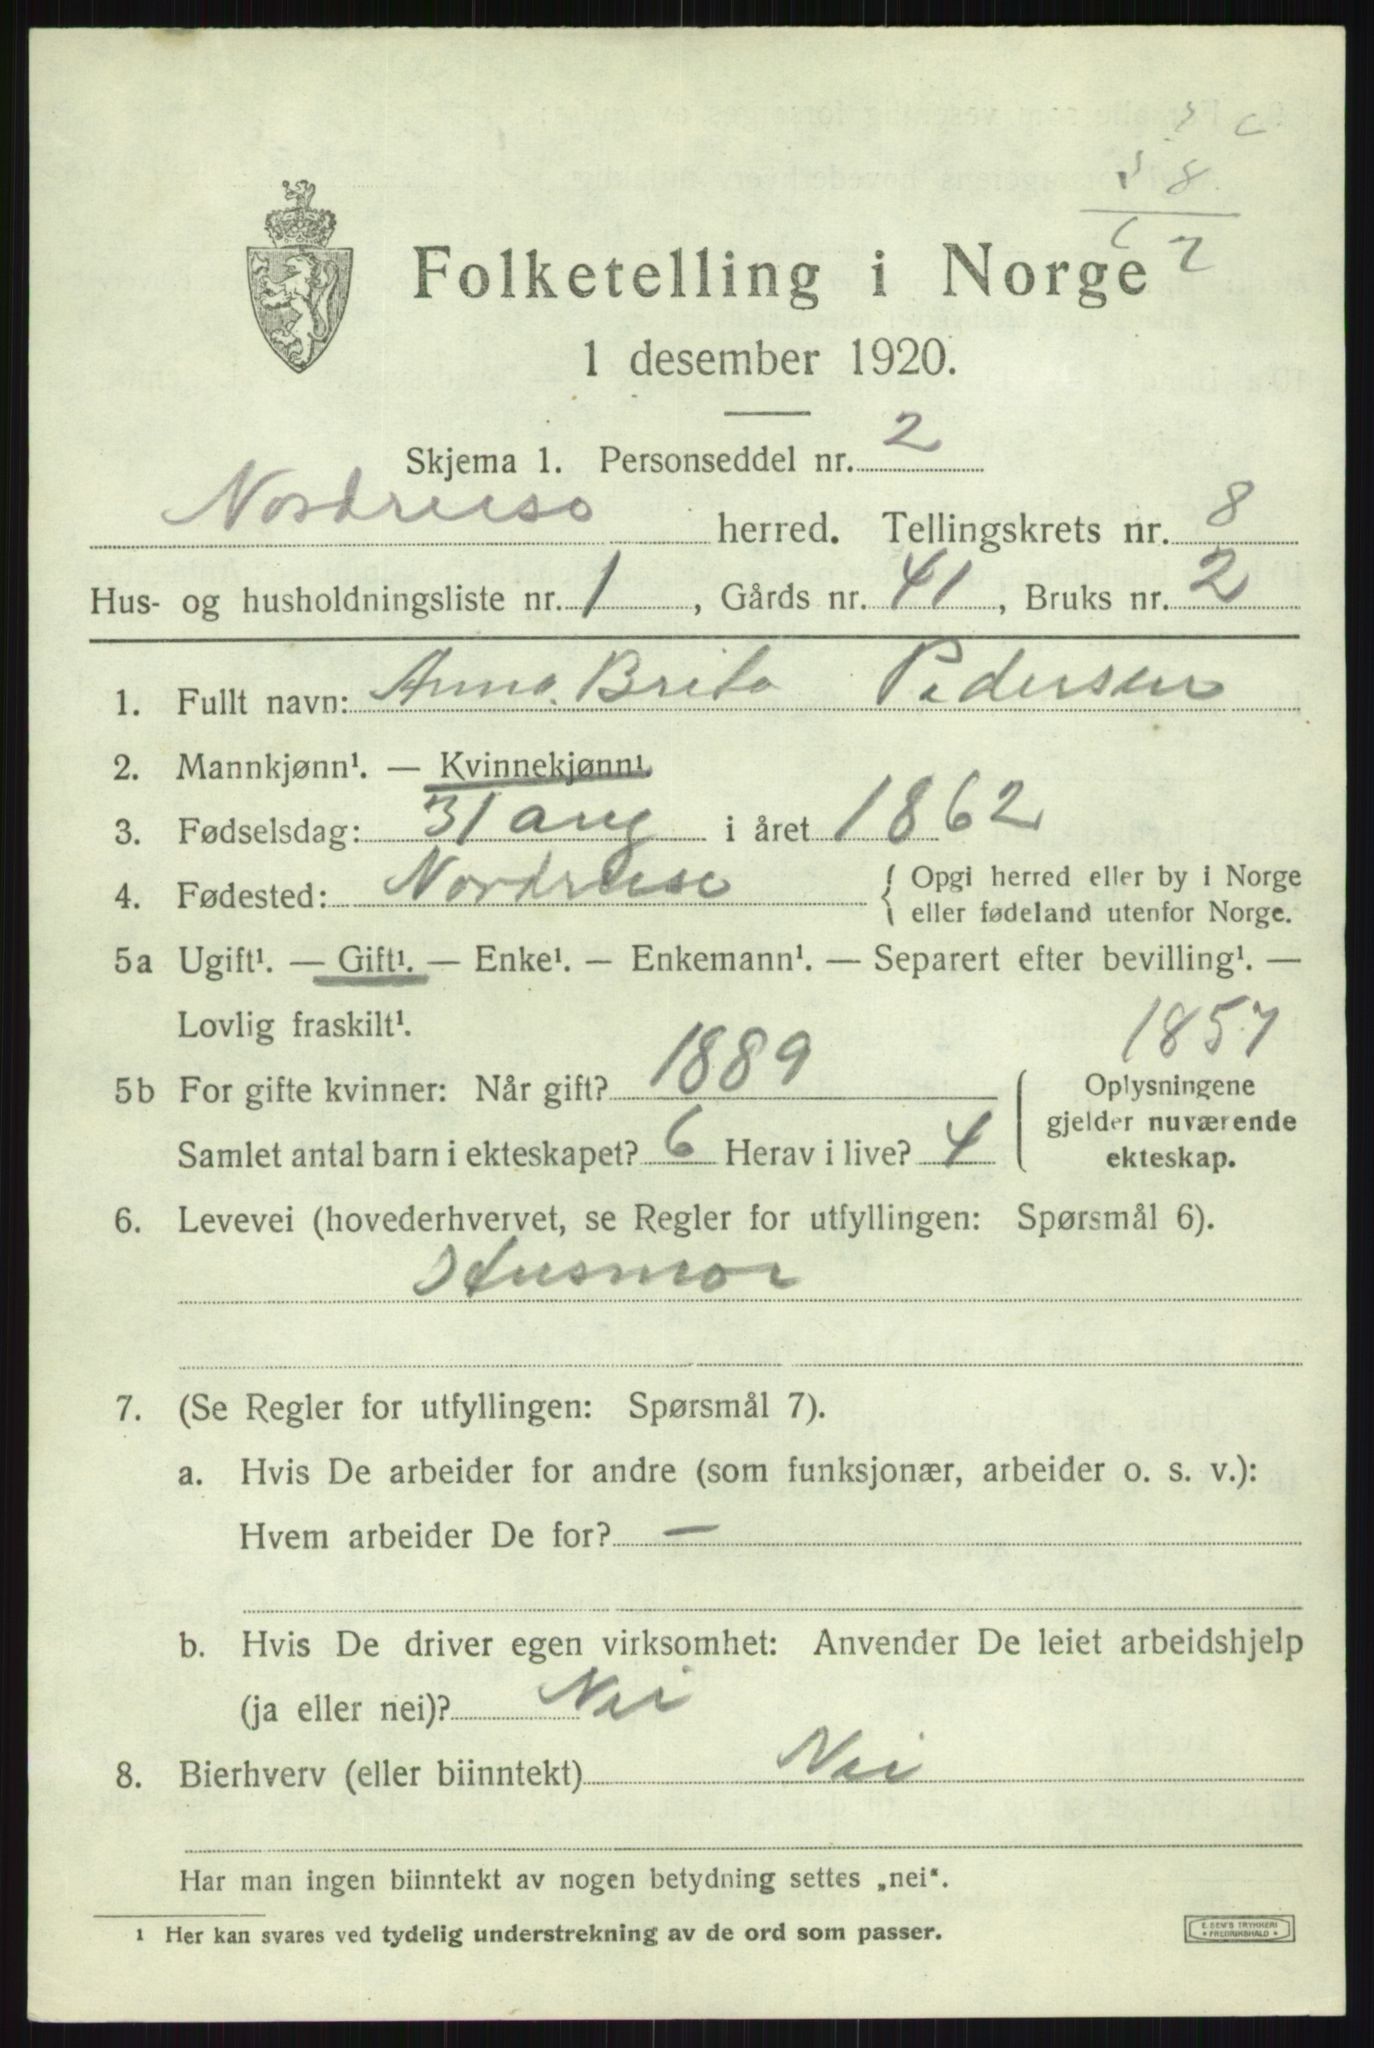 Folketelling i Norge
1 desember 1920.
Skjema 1. Personseddel nr. 2
Nordreisa herred. Tellingskrets nr. 8
Hus- og husholdningsliste nr. 1, Gårds nr. 41, Bruks nr. 2
1. Fullt navn: Anna Brita Pedersen
2. Mannkjønn¹. — Kvinnekjønn¹
3. Fødselsdag: 31 aug i året 1862
4. Fødested: Nordreisa { Opgi herred eller by i Norge
eller fødeland utenfor Norge.
5a Ugift¹. — Gift¹. — Enke¹. — Enkemann¹. — Separert efter bevilling¹. —
Lovlig fraskilt¹.
1857
5b For gifte kvinner: Når gift? 1889
Samlet antal barn i ekteskapet? 6 Herav i live? 4
Oplysningene
gjelder nuværende
ekteskap.
6. Levevei (hovederhvervet, se Regler for utfyllingen: Spørsmål 6).
Husmor
7. (Se Regler for utfyllingen: Spørsmål 7).
a. Hvis De arbeider for andre (som funksjonær, arbeider o. s. v.):
Hvem arbeider De for? —
b. Hvis De driver egen virksomhet: Anvender De leiet arbeidshjelp
(ja eller nei)? Nei
8. Bierhverv (eller biinntekt) Nei
Har man ingen biinntekt av nogen betydning settes „nei“.
¹ Her kan svares ved tydelig understrekning av de ord som passer.
E. SEM'S TRYKKERI
* FREDRIKSHALD *